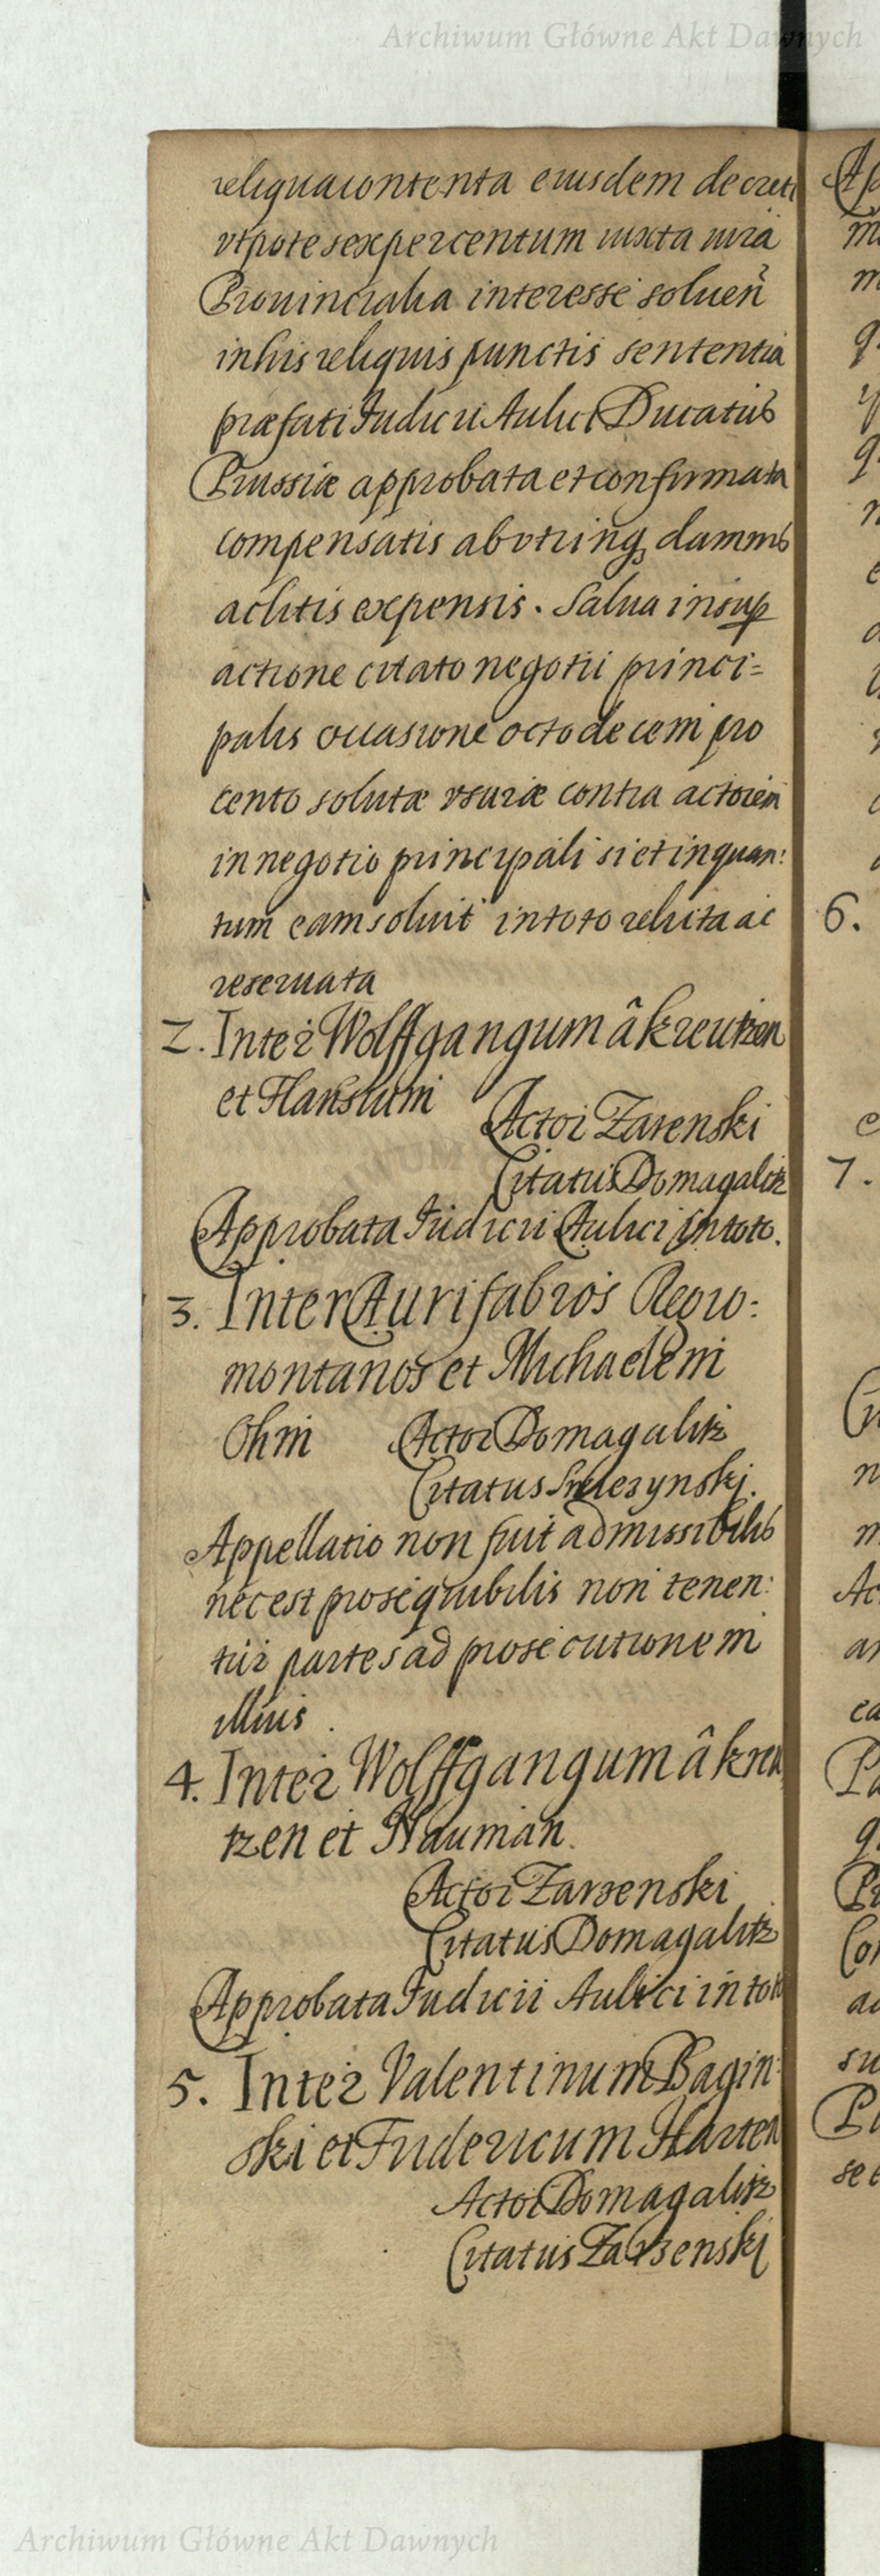 Archiwum Główne Akt Dawnych
reliqua contenta eiusdem decreti
vtpote sex per centum iuxta iura
Prouincialia interesse soluen̄
in his reliquis punctis sententia
præfati Iudicii Aulici Ducatus
Prussiæ approbata et confirmata
compensatis ab vtrinq₃ damnis
ac litis expensis. Salua insup
actione citato negotii princi=
palis occasione octodecem pro
cento solutæ vsuriæ contra actorem
in negotio principali si et inquan:
tum eam soluit in toto relicta ac
reseruata
2. Inter Wolffgangum â kreutzen
et Hansium
Actor Zarenski
Citatus Domagalitz
Approbata Iudicii Aulici in toto.
3. Inter Aurifabros Regio:
montanos et Michaelem
Ohm Actor Domagalitz
Citatus
Appellatio non fuit admissibilis
nec est prosequibilis non tenen:
tur partes ad prosecutionem
illius.
4. Inter Wolffgangum â kreu
tzen et Nauman.
Actor Zarzenski
Citatus Domagalitz
Approbata Iudicii Aulici in toto
5. Inter Valentinum Bagin:
ski et Fridericum Harten
Actor Domagalitz
Citatus Zarzenski
6.
7.
Archiwum Główne Akt Dawnych